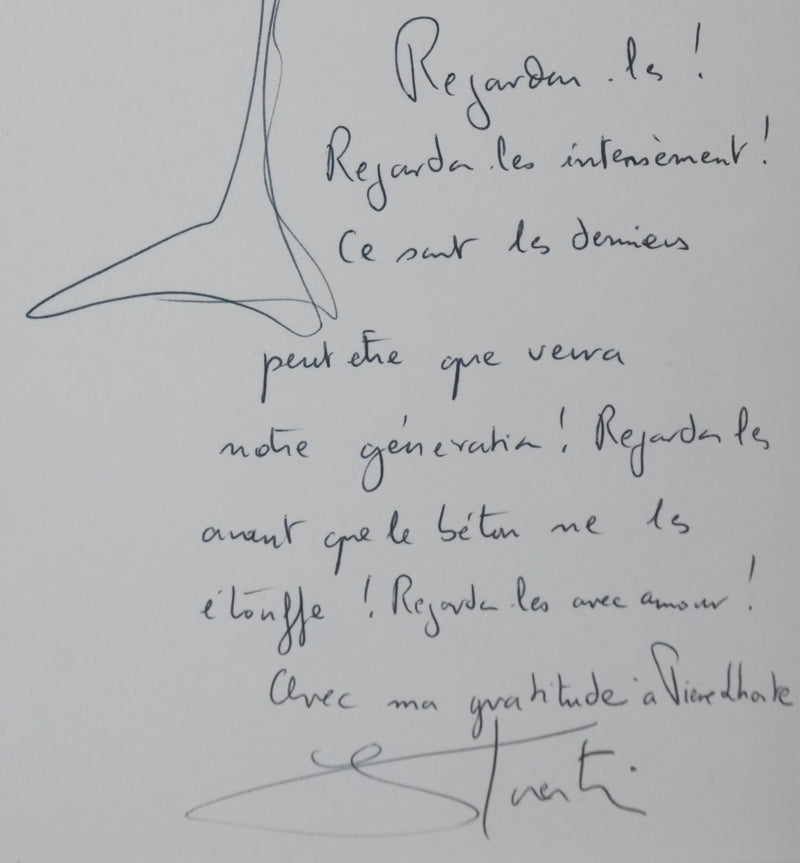 Regardez-les !
Regardez-les intensèment !
Ce sont les derniers
peut etre que verra
notre génération ! Regardez les
avant que le béton ne les
étouffe ! Regardez-les avec amour !
Avec ma gratitude à Pierre